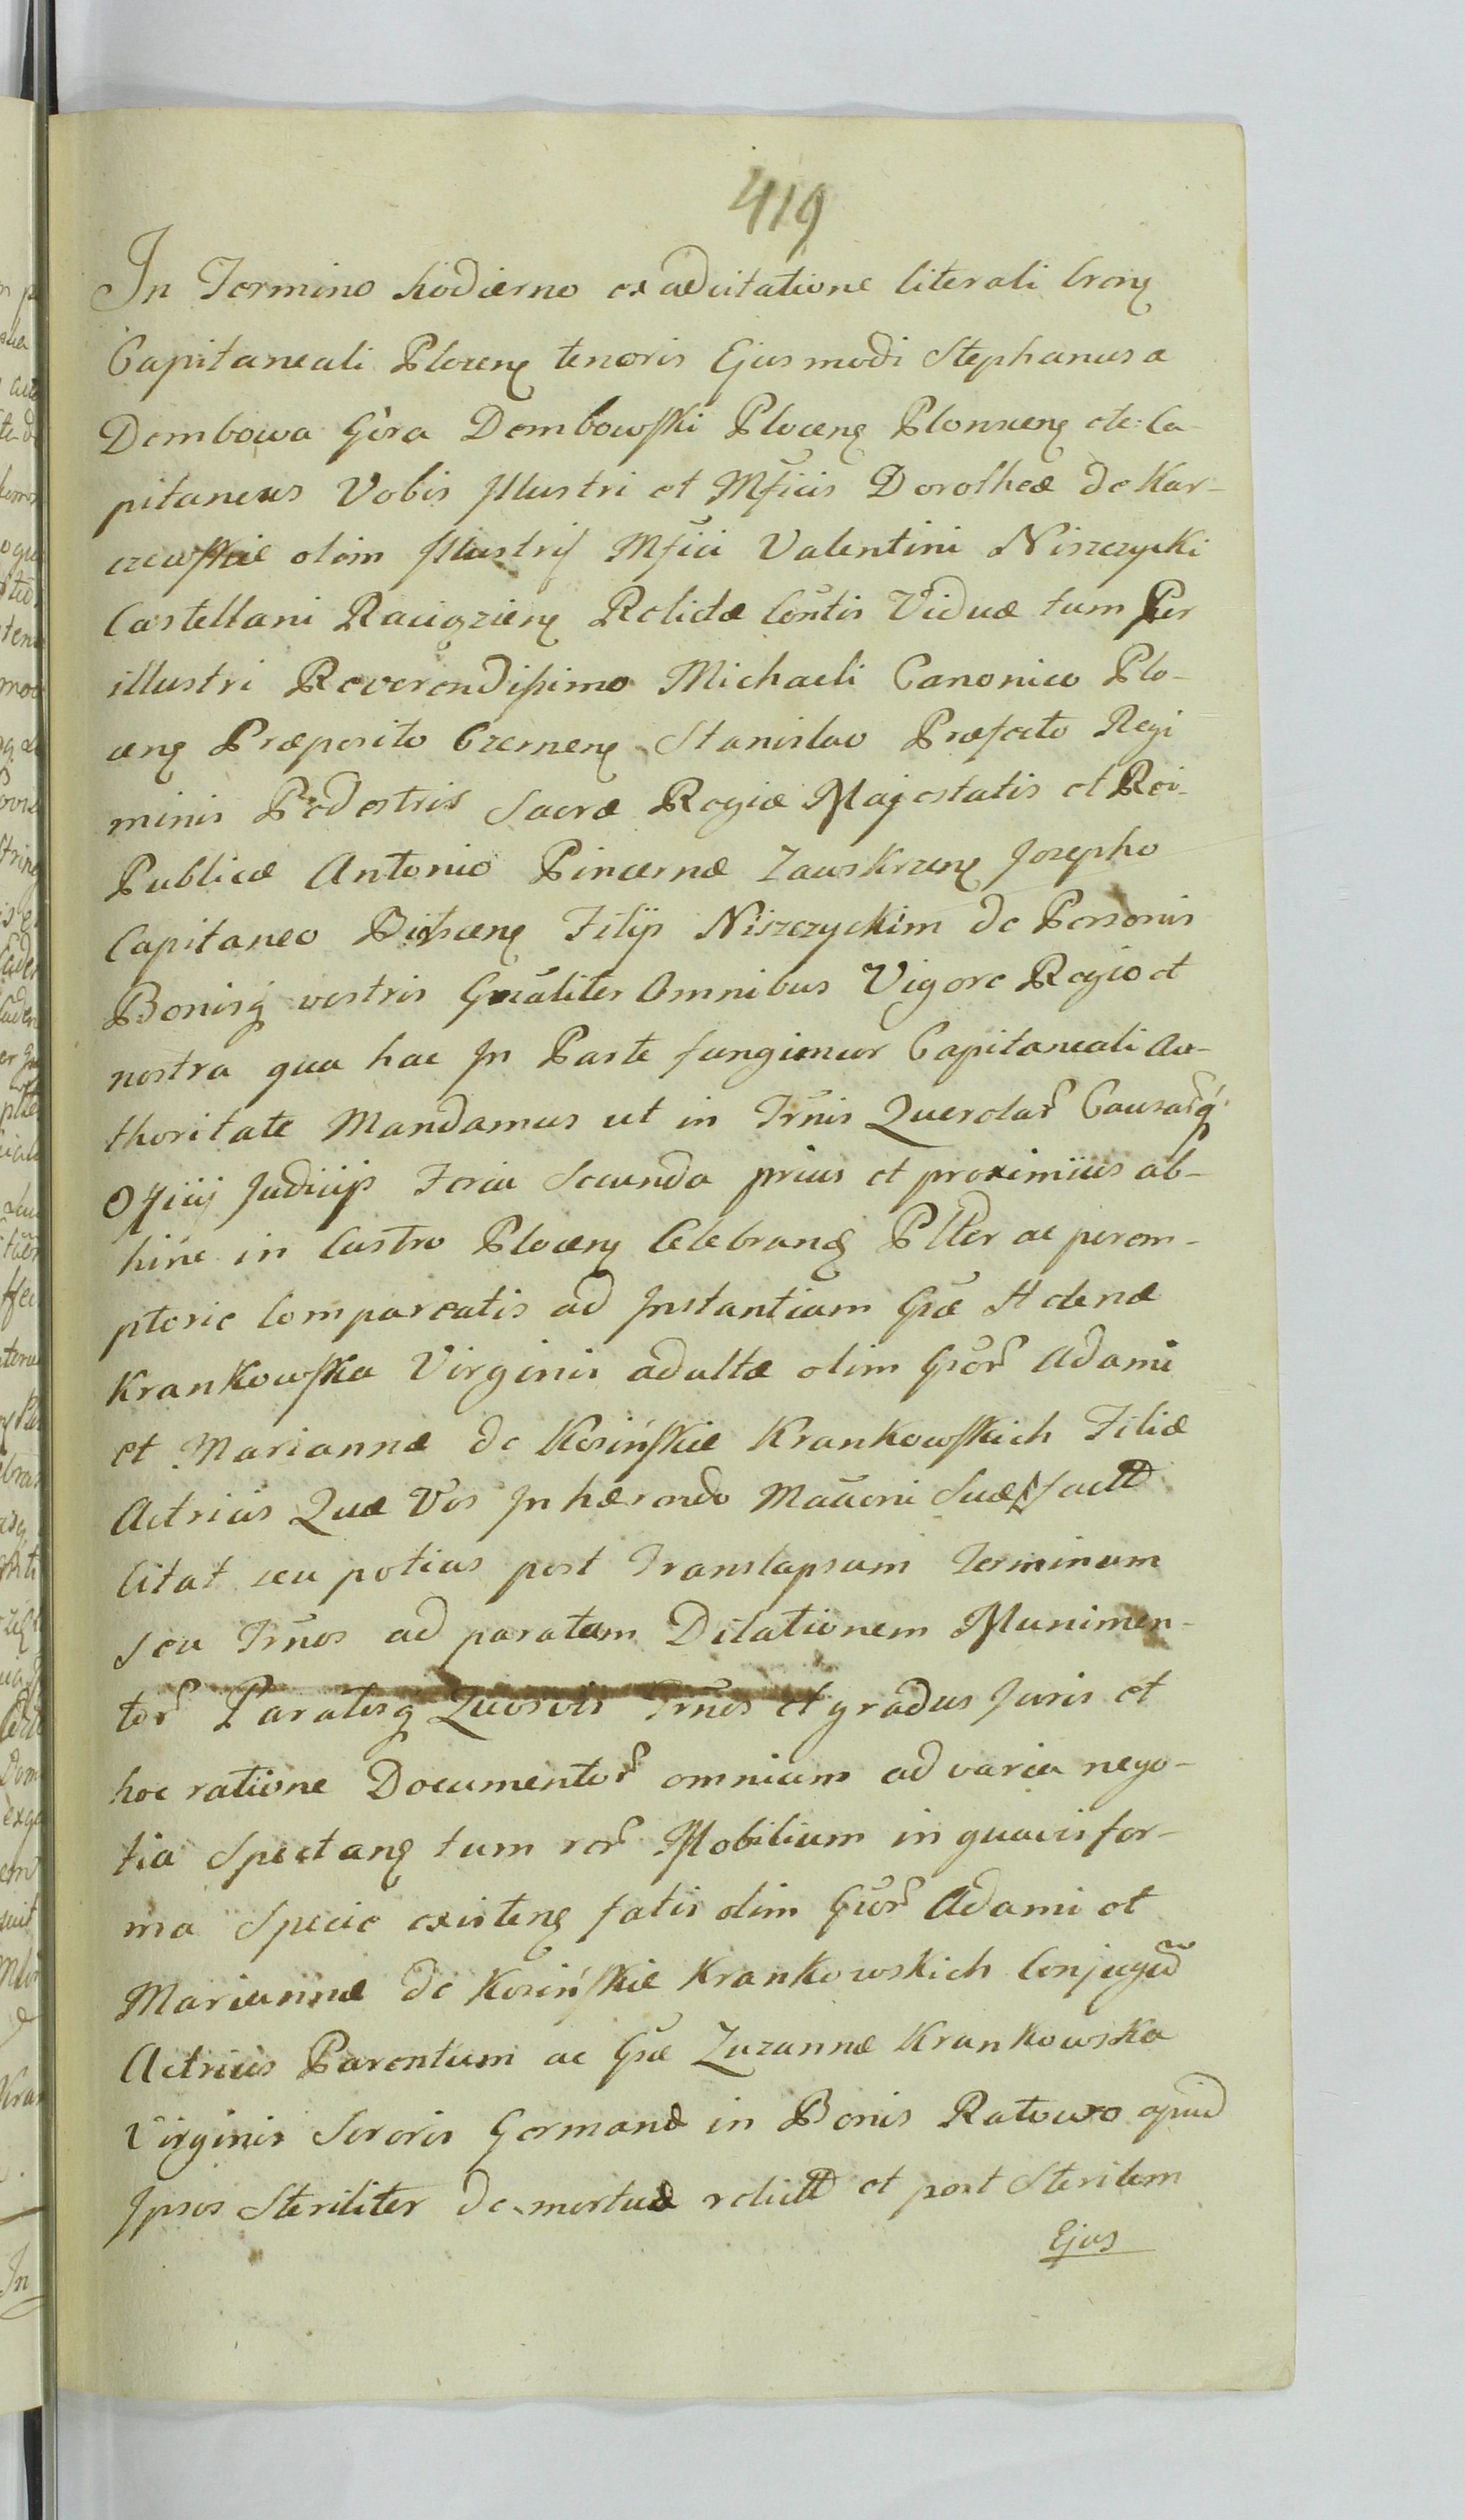 419
In Termino hodierno ex adcitatione literali broną
Capitaneali Plocenę tenoris Ejusmodi Stephanus a
Dembowa Góra Dembowski Plocenę Plonscenę etc: Ca-
pitaneus Vobis Illustri et Mficis Dorotheæ de Kar-
czewskie olim Illustris Mfici Valentini Niszczycki
Castellani Raciązienę Relictæ Contis Viduæ tum Per
illustri Reverendissimo Michaeli Canonico Plo-
cenę Præposito Czernenę Stanislao Præfecto Regi
minis Pedestris Sacræ Regiæ Majestatis et Rei-
Publicæ Antonio Pincernæ Zawskrzenę Josepho
Capitaneo Filijs Niszczyckim de Personis
Bonisq vestris Gnaliter Omnibus Vigore Regio et
nostra qua hac In Parte fungimur Capitaneali Au-
thoritate Mandamus ut in Trnis Querelar Causarq
Offici Judicijs Feria Secunda prius et proximius ab-
hinc in Castro Plocenę Celebrandę Plter ac perem-
ptorie Compareatis ad Instantiam Gsæ Helenæ
Krankowska Virginis adultæ olim Gsor Adami
et Mariannæ de Kosińskie Krankowskich Filiæ
Actricis Quæ Vos Inhærendo Maoni Suæ
Citat seu potius post Translapsum Terminum
seu Trnos ad paratam Dilationem Munimen-
tor Paratosq Quosvis Trnos et gradus Juris et
hoc ratione Documentor omnium ad varia nego-
tia Spectanę tum rer Mobilium in quavis for-
ma Specie existenę fatis olim Gsor Adami et
Mariannæ de Kosińskie Krankowskich Conjugũ
Actricis Parentum ac Gsæ Zuzannæ Krankowska
Virginis Sororis Germanæ in Bonis Ratowo apud
Ipsos Steriliter demortuæ relict et post Sterilem
Ejus